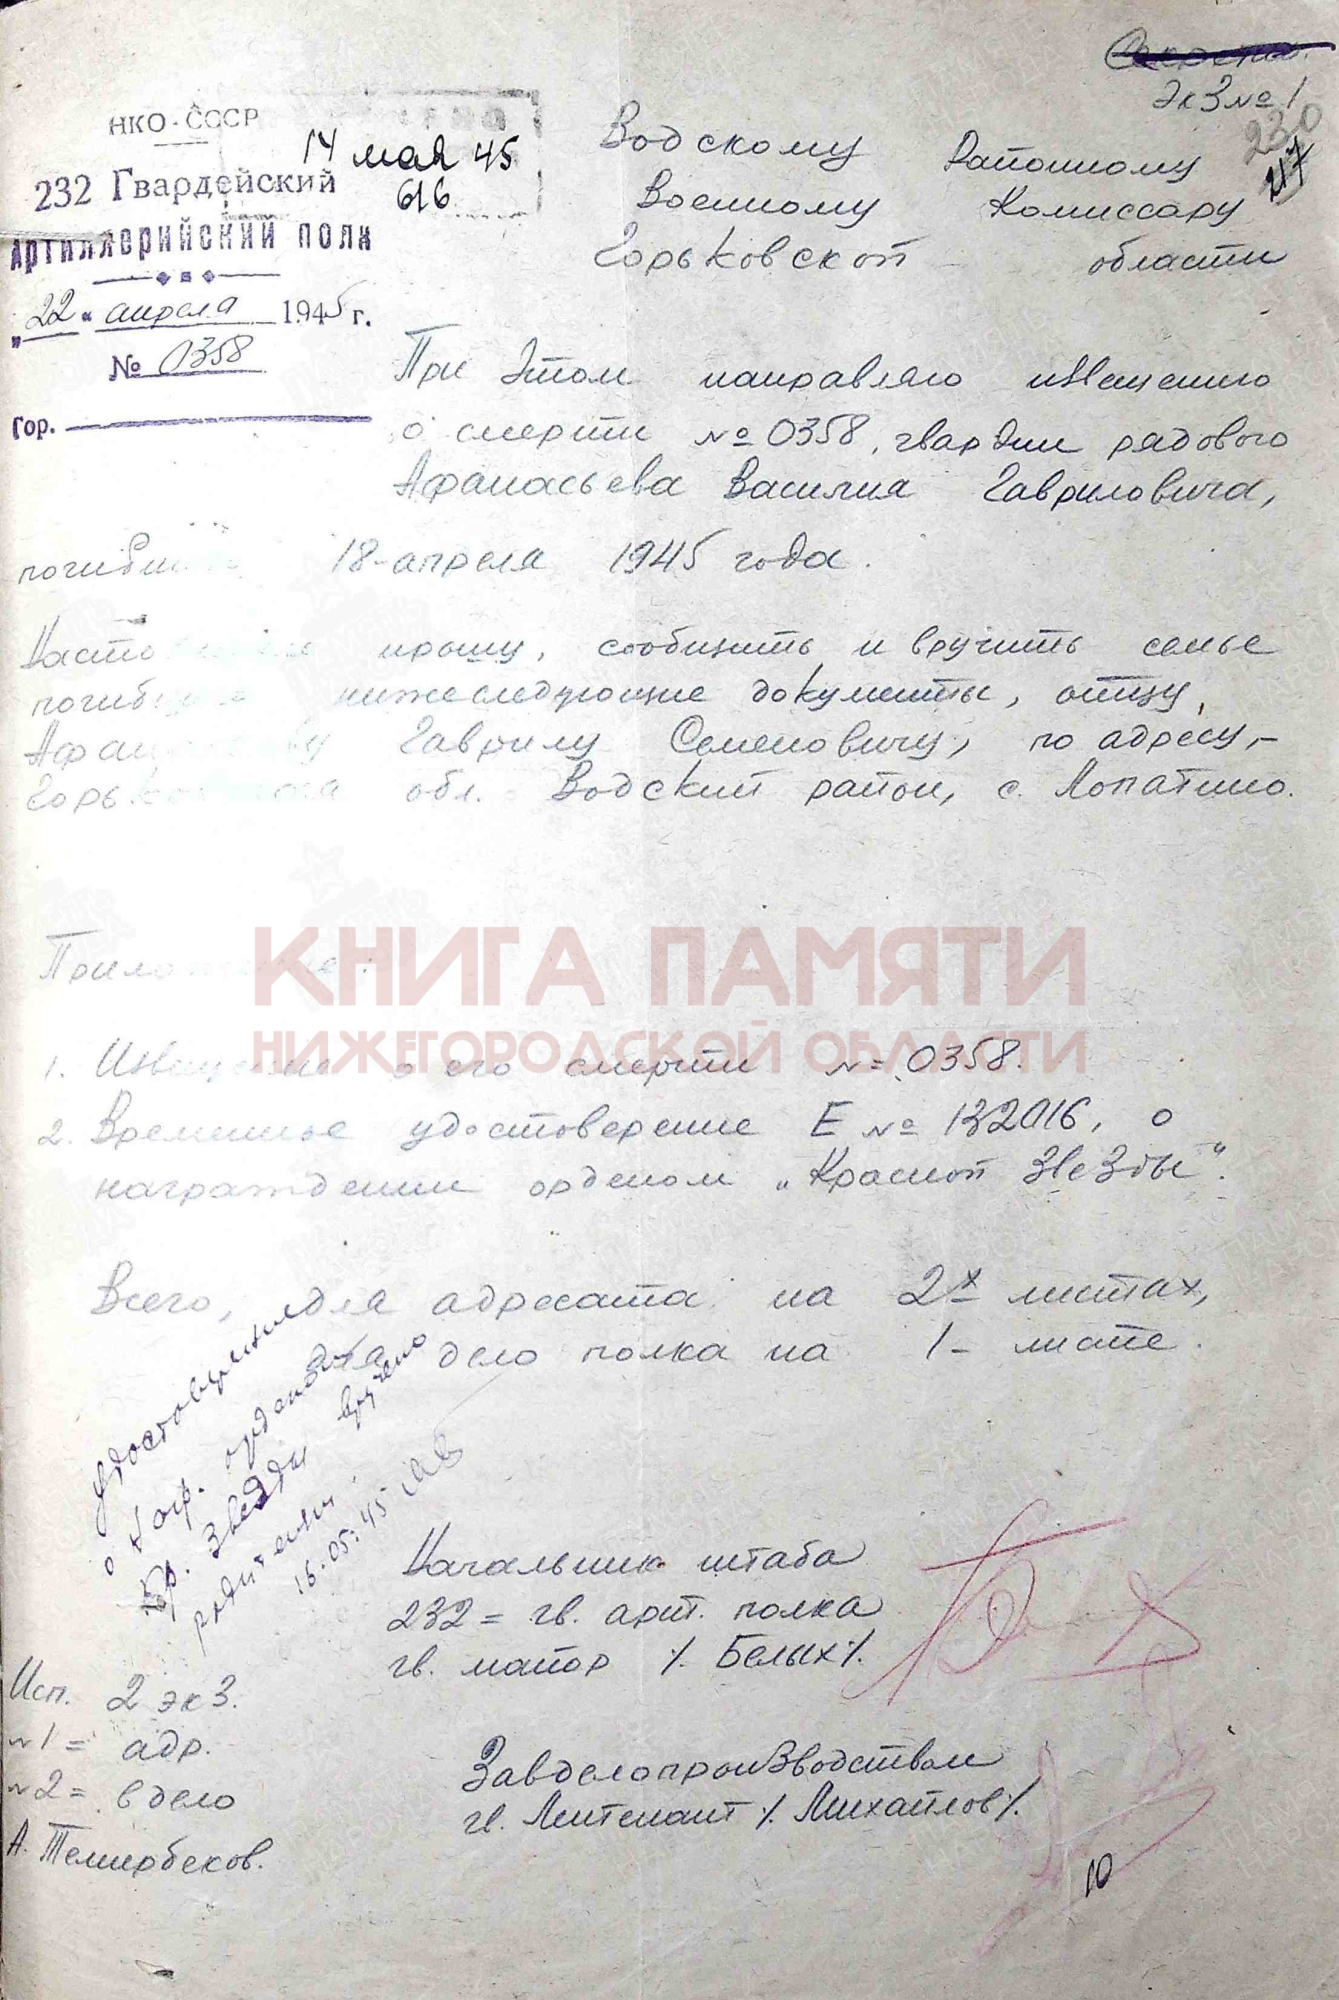 Секретно.
Экз № 1
230
217
НКО-СССР
14 мая 45
616
232 Гвардейский
Артиллерийский полк
„22“ апреля 1945 г.
№ 0358
Гор.
Водскому Районному
Военному Комиссару
Горьковской области
При этом направляю извещению
о смерти № 0358, гвардии рядового
Афанасьева Василия Гавриловича,
18-апреля 1945 года.
прошу, сообщить и вручить семье
нижеследующие документы, отцу,
Гаврилу Семеновичу, по адресу,-
обл. Водский район, с. Лопатино.
Приложение:
КНИГА ПАМЯТИ
НИЖЕГОРОДСКОЙ ОБЛАСТИ
1. Извещение о его смерти №=.0358.
2. Временное удостоверение Е № 132016, о
награждении орденом „Красной Звезды“.
Всего, для адресата на 2х листах,
для дело полка на 1- листе.
Удостоверение
о награ. орденом
Кр. Звезды вручено
родителям.
16.05.45
Начальник штаба
232= гв. арт. полка
гв. майор /. Белых/.
Исп. 2 экз.
№1= адр.
№2= в дело
А. Темирбеков.
Завделопроизводством
гв. Лейтенант /. Михайлов/.
10